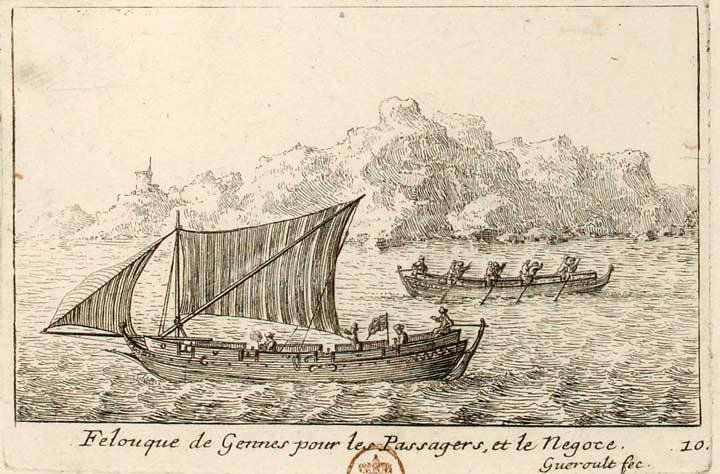 Felouque de Gennes pour les Passagers, et le Negoce. 10.
Gueroult fec.